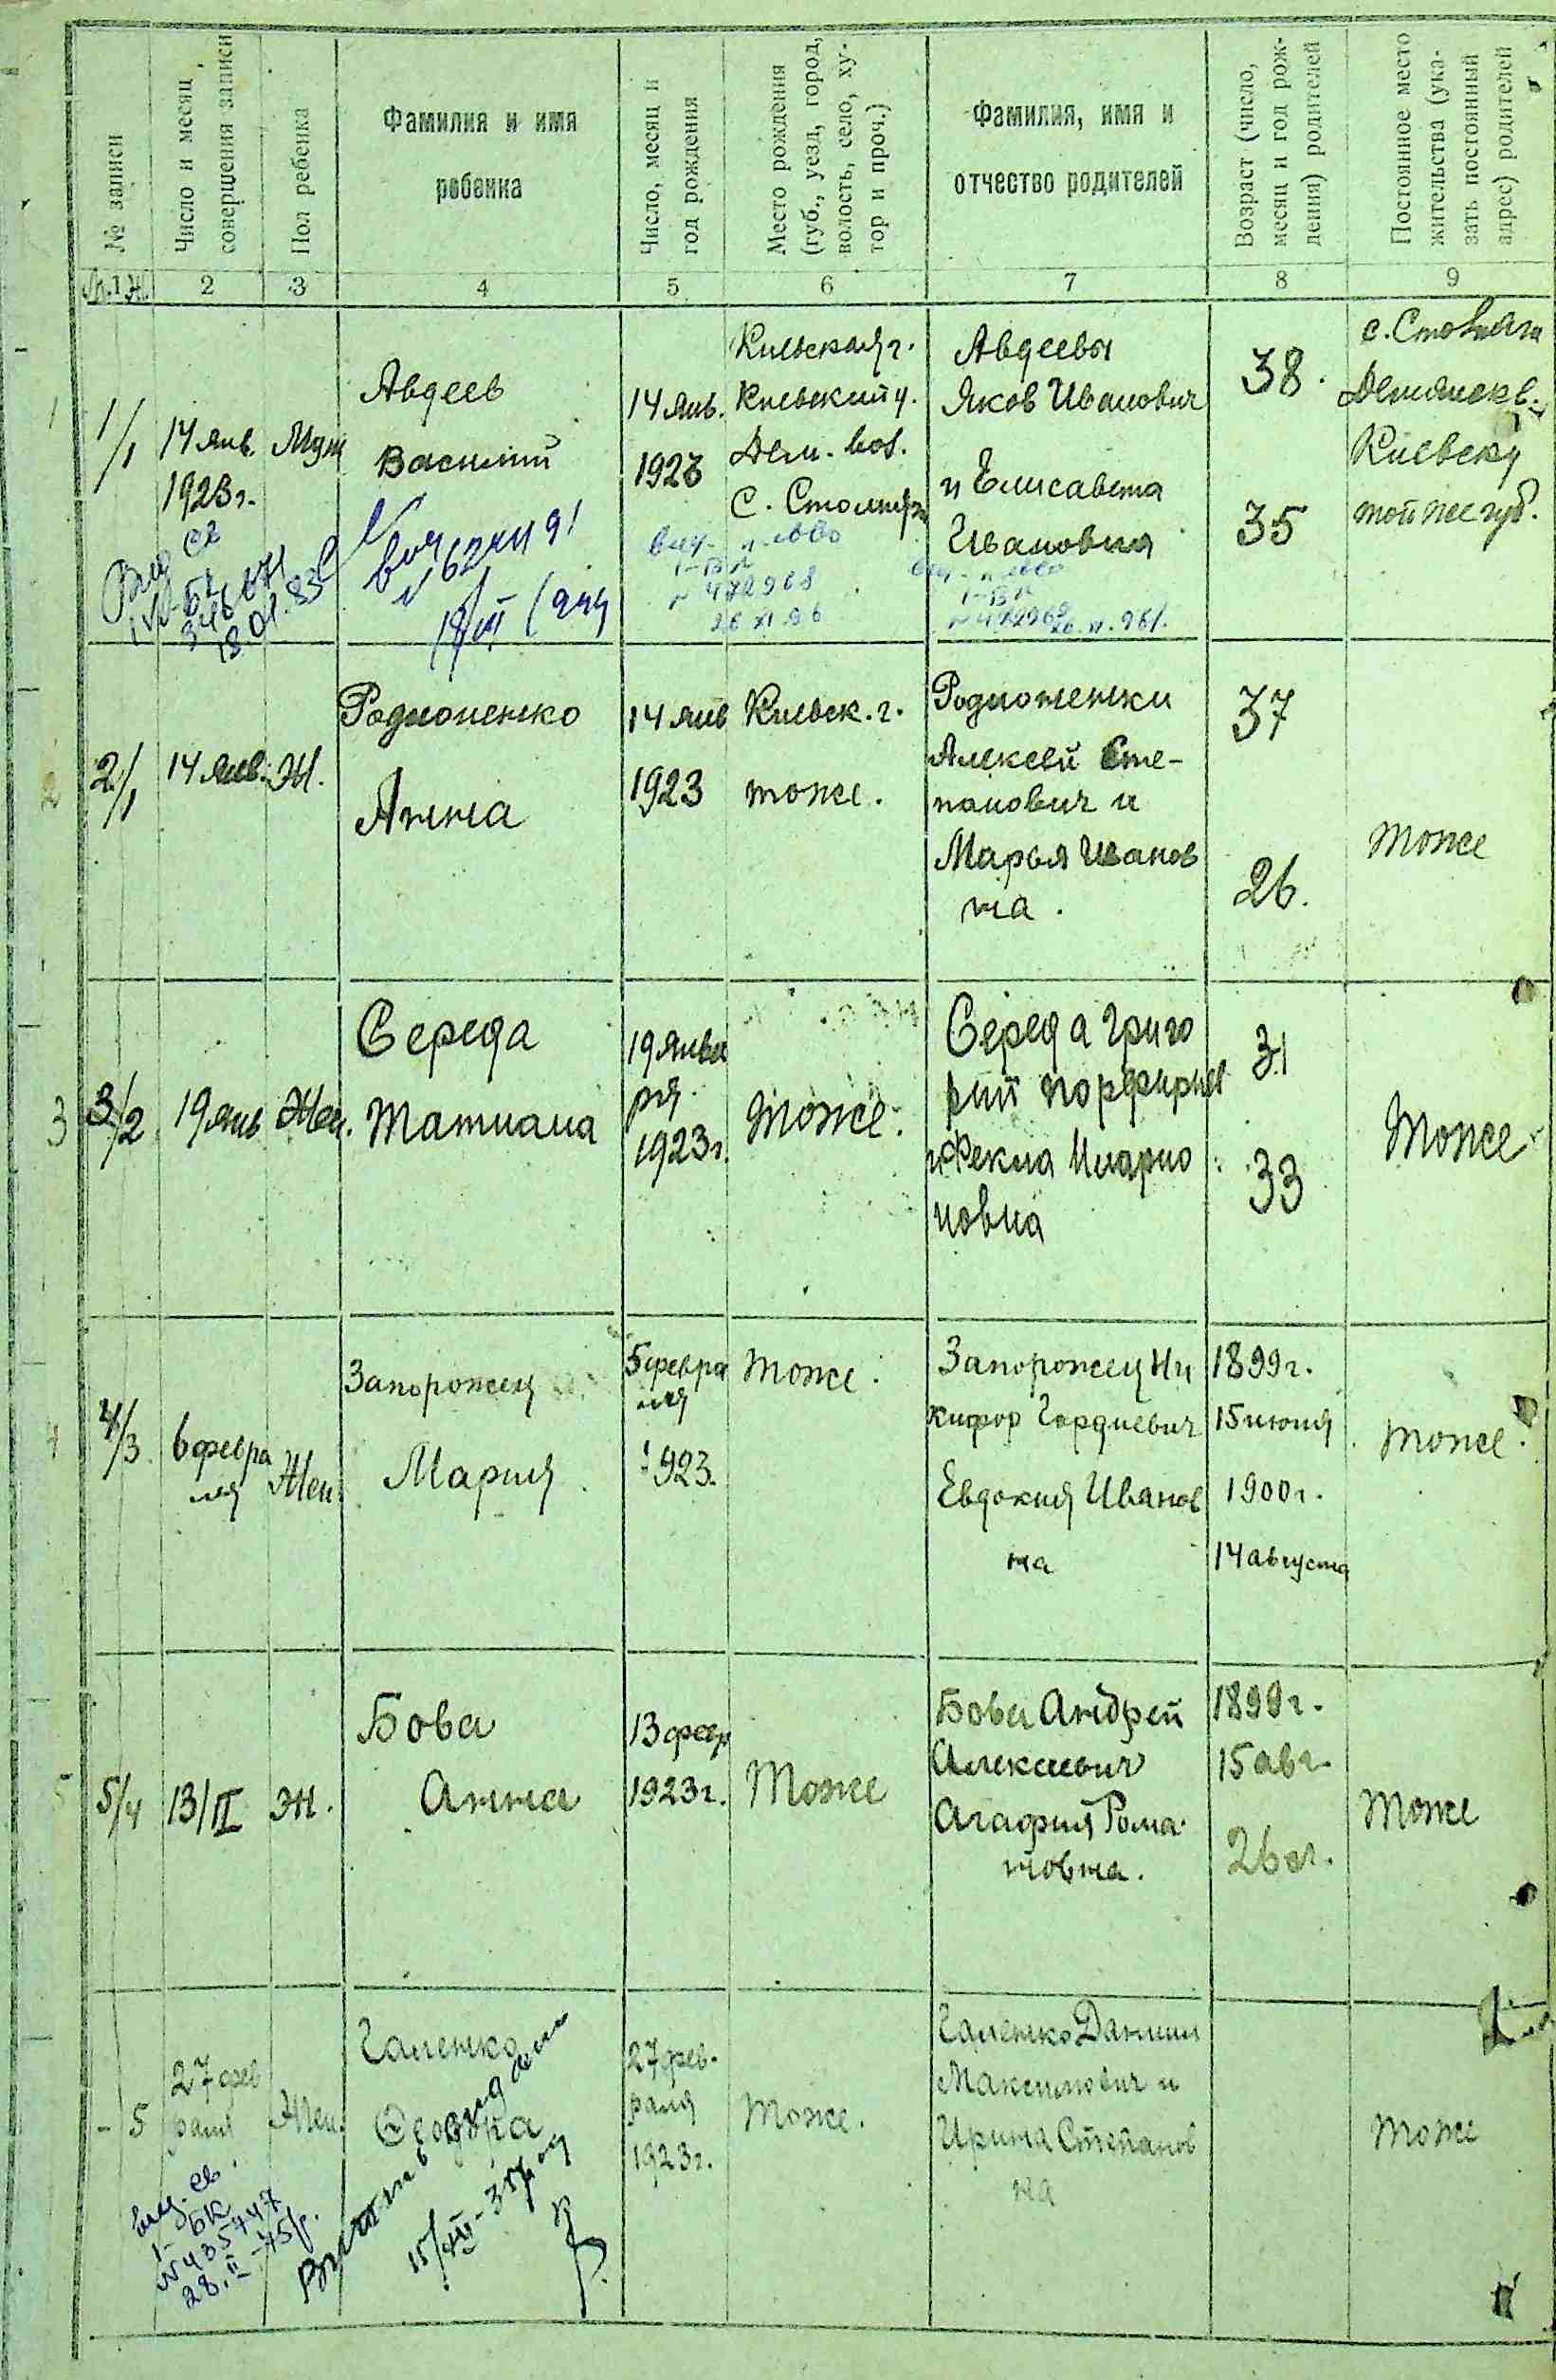 № записи
Число и месяц
совершения записи
Пол ребенка
Фамилия и имя
ребенка
Число, месяц и
год рождения
Место рождения
(губ., уезд, город,
волость, село, ху-
тор и проч.)
Фамилия, имя и
отчество родителей
Возраст (число,
месяц и год рож-
дения) родителей
Постоянное место
жительства (ука-
зать постоянный
адрес) родителей
М. 1 Ж. 2 3 4 5 6 7 8 9
1
1/1
14 янв.
1923 г.
Муж
Авдеев
Василий
14 янв.
1923
Киевская г.
Киевский у.
Дем. вол.
С.
Авдеевы
Яков Иванович
и Елисавета
Ивановна
38.
35
с.
Киевск у
той же губ.
18/III
2
2/1
14 янв.
Ж.
Родионенко
Анна
14 янв
1923
Киевск. г.
тоже.
Родионенки
Алексей Сте-
панович и
Марья Иванов
на.
37
26.
тоже
3
3/2
19 янв
Жен.
Середа
Татиана
19 янва
ря.
1923 г.
Тоже.
Середа Григо
рий Порфирьев
и Фекла Иларио
новна
31
33
Тоже
4
4/3
6 февра
ля
Жен.
Запорожец
Мария
5 февра
ля
1923.
Тоже.
Запорожец Ни
кифор Гордиевич
Евдокия Иванов
на
1899 г.
15 июня
1900 г.
14 августа
тоже.
5
5/4
13/II
Ж.
Бова
Анна
13 февр
1923 г.
Тоже
Бова Андрей
Алексеевич
Агафия Рома-
новна.
1899 г.
15 авг.
26 л.
Тоже
- 5
27 фев
раля
Жен.
Галенко
Феодора
27 фев-
раля
1923 г.
Тоже.
Галенко Даниил
Максимович и
Ирина Степанов
на
тоже
выд. св.
I-БК
№ 435747
28.II-75 г.